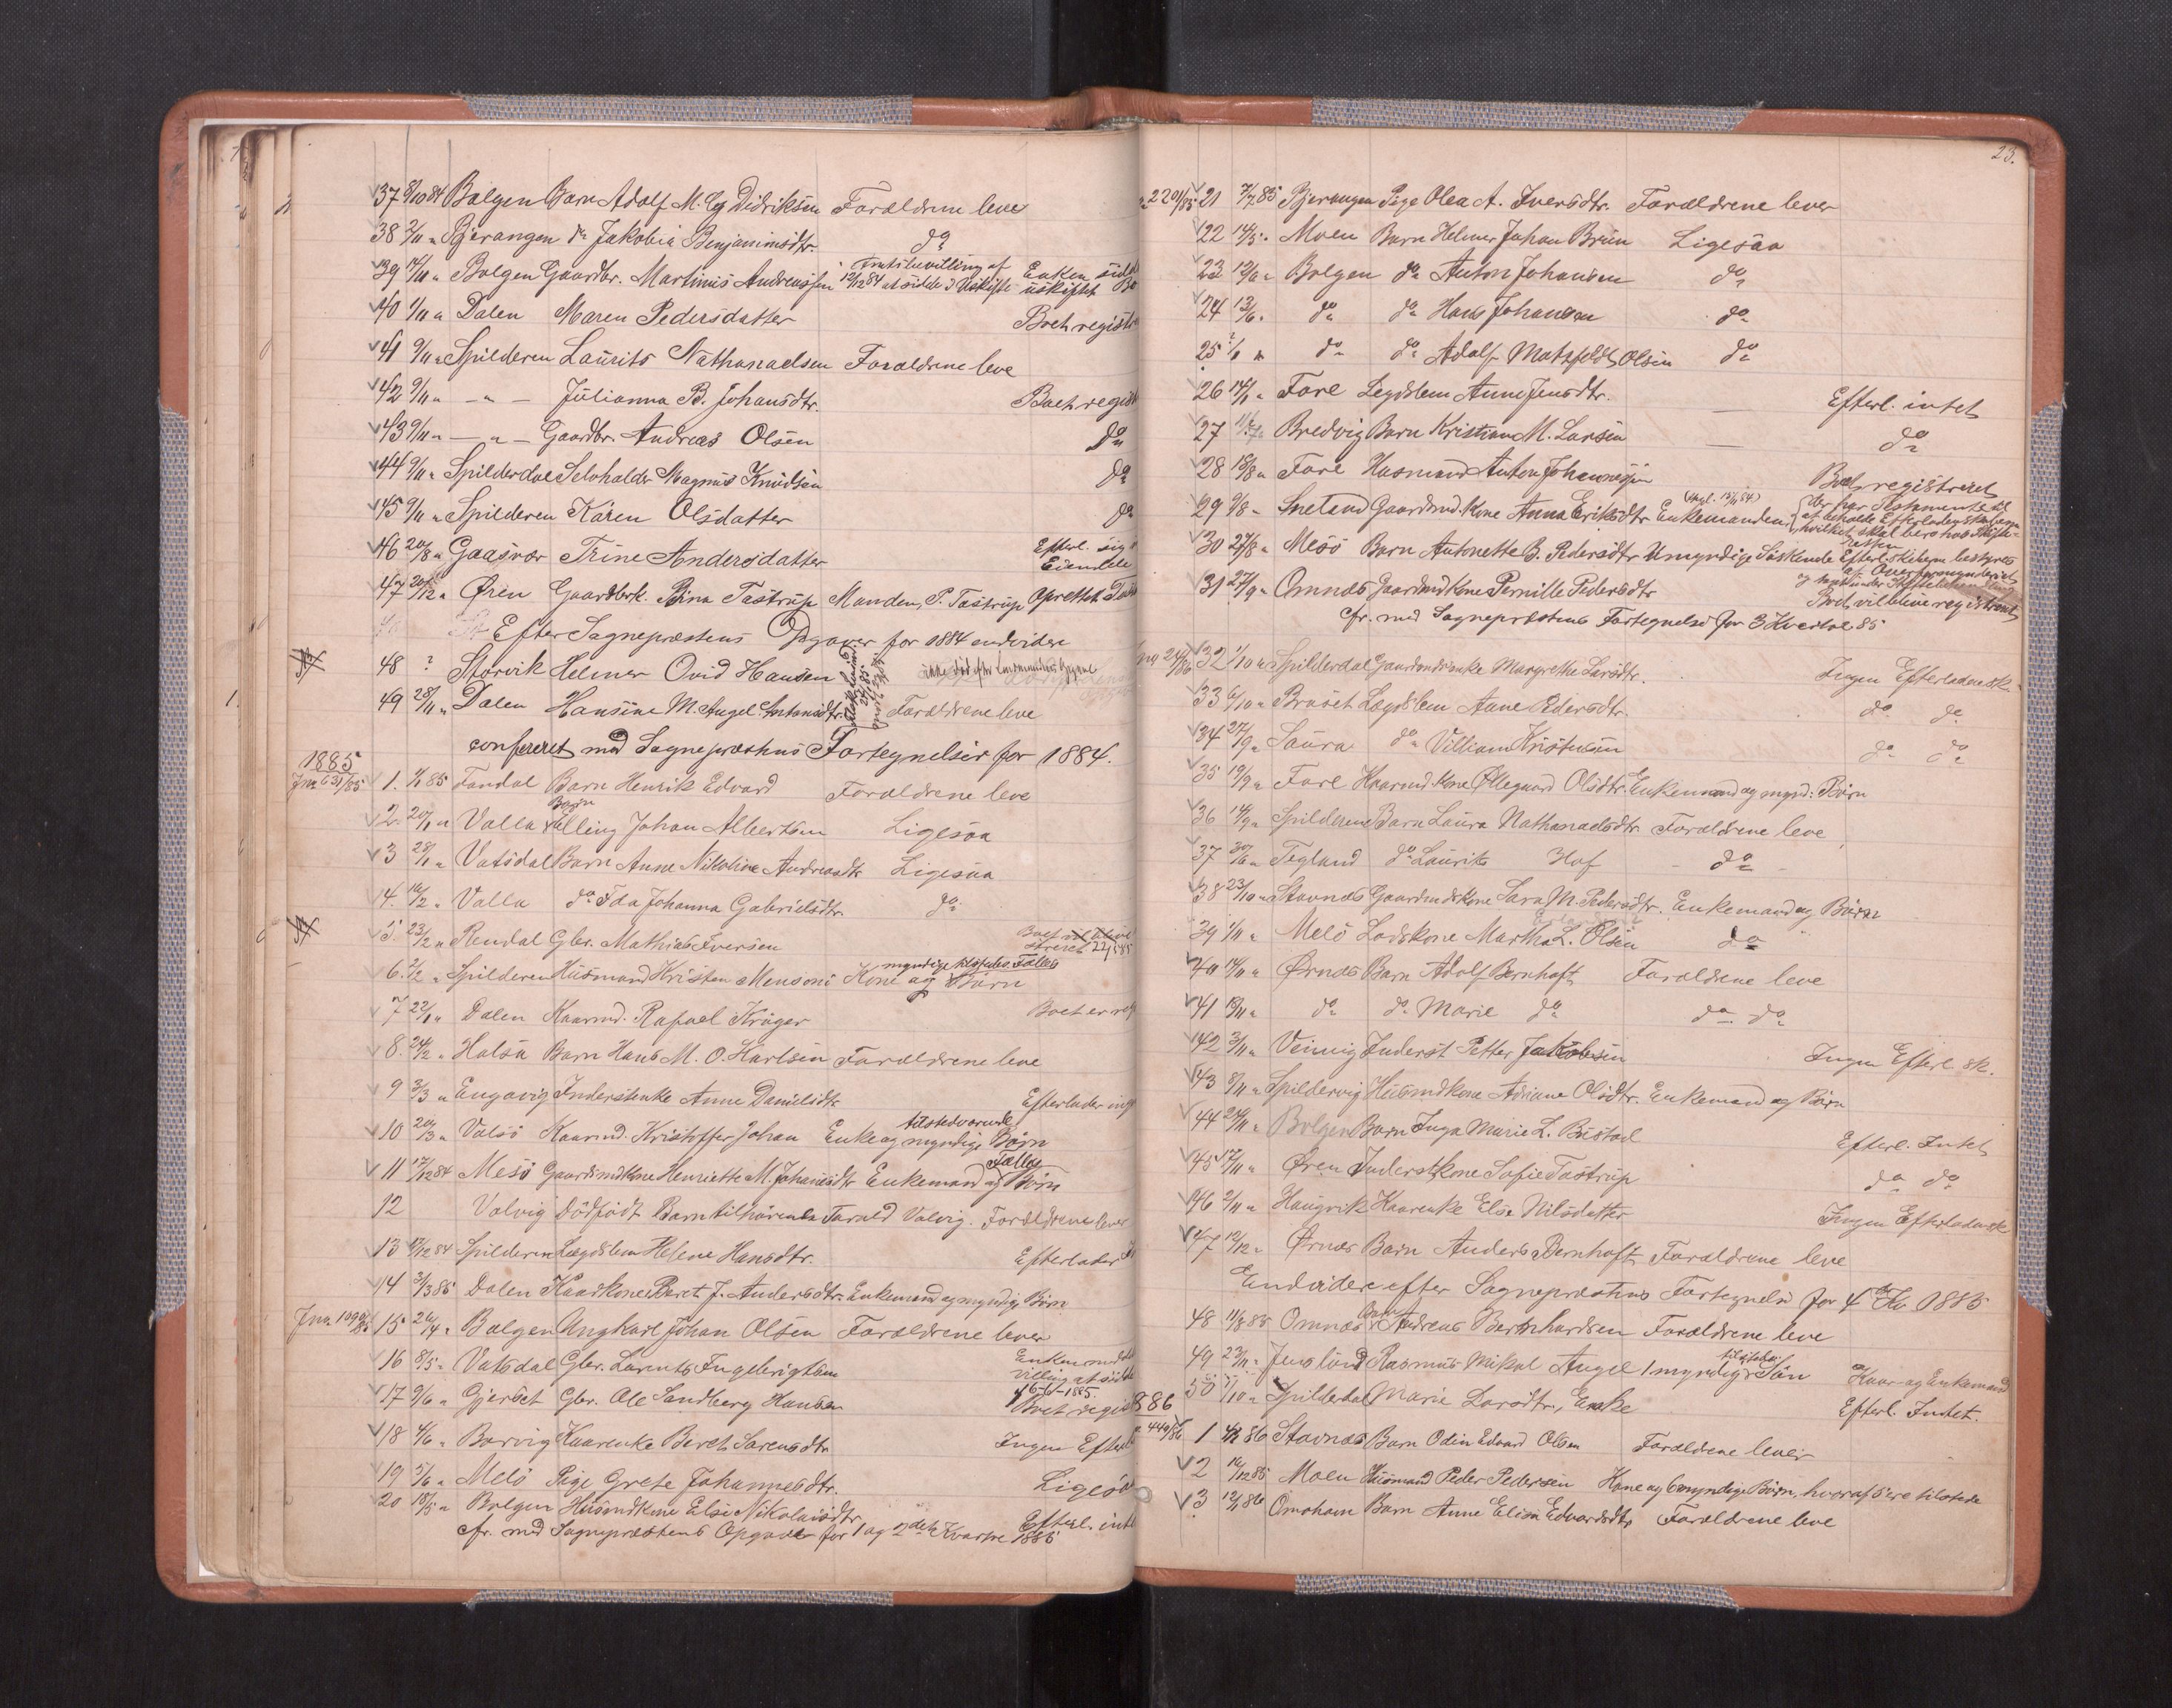 37 8/10 84 Bolgen Barn Adolf M. Eg Didriksen Forældrene leve
38 2/11 " Bjerangen do Jakobia Benjaminsdtr. do
39 14/11 " Bolgen Gaardbr. Martinus Andreassen Amtsbevilling af 12/12 84 at sidde i Uskifte Enken sidd uskiftet Bo
40 1/11 " Dalen Maren Pedersdatter Boet registre
41 9/11 " Spilderen Laurits Nathanaelsen Forældrene leve
42 9/11 " - " - Julianna B. Johansdtr. Boet regist
43 9/11 " - " - Gaardbr. Andreas Olsen do
44 9/11 " Spilderdal Selvholder Magnus Knudsen do
45 9/11 " Spilderen Karen Olsdatter do
46 20/8 " Gaasvær Trine Andersdatter Efterl. sig Eiendele
47 20/12 " Øren Gaardbrk. Rina Tastrup Manden, P. Tastrup oprettet
Efter Sognepræstens Opgaver for 1884 endvidere
48 ? Storvik Helmer Ovid Hansen ikke død efter Lensmandens Opgave
49 28/11 " Dalen Hansine M. Angel Antonsdtr. Forældrene leve
confereret med Sognepræstens Fortegnelser for 1884.
1885
Jno 631/85 1. 1/1 85 Fondal Barn Henrik Edvard Forældrene leve
2. 20/1 " Valla Barn Elling Johan Albertsen Ligesaa
3 28/1 " Vatsdal Barn Anne Nikoline Andreasdtr Ligesaa
4. 16/2 " Valla do Ida Johanna Gabrielsdtr. do
5. 23/2 " Rendal Gbr. Mathias Iversen Boet
6. 2/2 " Spilderen Husmand Kristen Mensons Kone og myndige tilstedev. Fælles Børn
7 22/1 " Dalen Kaarmd. Rafael Krüger Boet er reg
8. 24/2 " Halsa Barn Hans M. O. Karlsen Forældrene leve
9 3/3 " Engavig Inderstenke Anne Danielsdtr Efterlader
10 20/3 " Valsø Kaarmd. Kristoffer Johan Enke og tilstedeværende myndige Børn
11 17/12 84 Mesø Gaardmdkone Henriette M. Johansdtr Enkemand og Fælles Børn
12 Valvig Dødfødt Barn tilhørende Tarald Valvig. Forældrene lever
13 17/12 84 Spilderen Lægdslem Helene Hansdtr. Efterlader
14 3/3 85 Dalen Kaarkone Beret J. Andersdtr. Enkemand og myndige Børn
Jno 1090/85 15 26/4 " Bolgen Ungkarl Johan Olsen Forældrene lever
16 8/5 " Vatsdal Gbr. Lorents Ingebrigtsen Enken villing at sidde
17 9/6 " Gjerset Gbr. Ole Sandberg Hansen 16-6-1885. Boet regis
18 4/6 " Borvig Kaarenke Beret Sorensdtr Ingen Efterl
19 5/6 " Melø Pige Grete Johannesdtr. Ligesa
20 18/5 " Bolgen Husmdkone Elsi Nikolaisdtr Efterl. int
cfr. med Sognepræstens Opgave for 1 og 2det Kvartal 1885
23.
21 7/7 85 Bjerangen Pige Olea A. Iversdtr. Forældrene lever
22 14/5 " Moen Barn Helmer Johan Brun Ligesaa
23 12/6 " Bolgen do Anton Johansen do
24 13/6 " do do Hans Johansen do
25 " do do Adolf Matzfeldt Olsen do
26 14/1 " Fore Legdslem Anne Jensdtr. Efterl. intet
27 11/7 " Bredvig Barn Kristian M. Larsen do
28 18/8 " Fore Husmand Anton Johannesen Boet registreret
29 9/8 - Snetind Gaardmd. Kone Anna Eriksdtr Enkemanden, (Tgl. 15/11 84) der har Testamente til at beholde Efterladenskaberne hvilket skal bero hos Skifteretten
30 27/8 " Mesø Barn Antonette B. Pedersdtr Umyndige Søskende Efterl. skaben bestyres af Overformynderiet
31 27/9 " Omnes Gaardmdkone Pernille Pedersdtr Boet vil blive registreret
cfr. med Sognepræstens Fortegnelse for 3 Kvartal 85
32 1/10 " Spilderdal Gaardmdsenke Margrethe Larsdtr. Ingen Efterladensk.
33 6/10 " Bruset Lægdslem Anne Pedersdtr. do do
34 27/9 " Saura do Villiam Kristensen do do
35 19/9 " Fore Kaarmdkone Ollegaard Olsdtr. Enkemand og mynd: Børn
36 14/9 " Spilderen Barn Laura Nathanaelsdtr. Forældrene leve
37 30/6 " Tegland do Laurits Hof - do -
38 23/10 " Stavnes Gaardmdskone Sara M. Pedersdtr. Enkemand og Børn
39 1/11 " Melø Lodskone Martha L. Olsen do
40 14/11 " Ørnes Barn Adolf Bernhoft Forældrene leve
41 13/11 " do do Marie do do do
42 3/11 " Veinvig Inderst Petter Jakobsen Ingen Efterl. sk.
43 8/11 " Spildervig Husmdkone Adriane Olsdtr. Enkemand og Børn
44 24/11 " Bolgen Barn Inga Marie L. Bustad Efterl. Intet
45 17/11 " Øren Inderstkone Sofie Tastrup do do
46 2/11 " Haugvik Kaarenke Else Nilsdatter Ingen Efterladensk
47 12/12 " Ørnes Barn Anders Bernhoft Forældrene leve
Endvidere efter Sognepræstens Fortegnelse for 4de Kv. 1885
48 11/8 85 Omnes Barn Andreas Bernhardsen Forældrene leve
49 23/11 " Jenslund Rasmus Mikal Angel 1 myndig tilstedev. Søn Kaar- og Enkemand
50 7/10 " Spilderdal Marie Larsdtr., Enke Efterl. Intet.
1886
440/86 1 4/2 86 Stavnes Barn Odin Edvard Olsen Forældrene lever
2 16/12 85 Moen Husmand Peder Pedersen Kone og 6 myndige Børn, hvoraf 5 ere tilstede
3 12/1 86 Omoham Barn Anne Elisa Edvardsdtr Forældrene leve